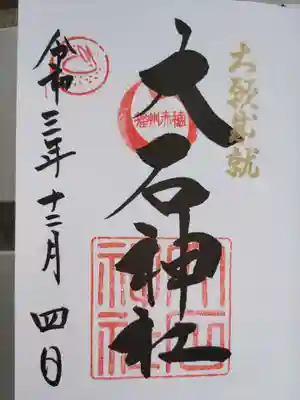 大願成就
大石神社
播州赤穂
令和三年十二月四日